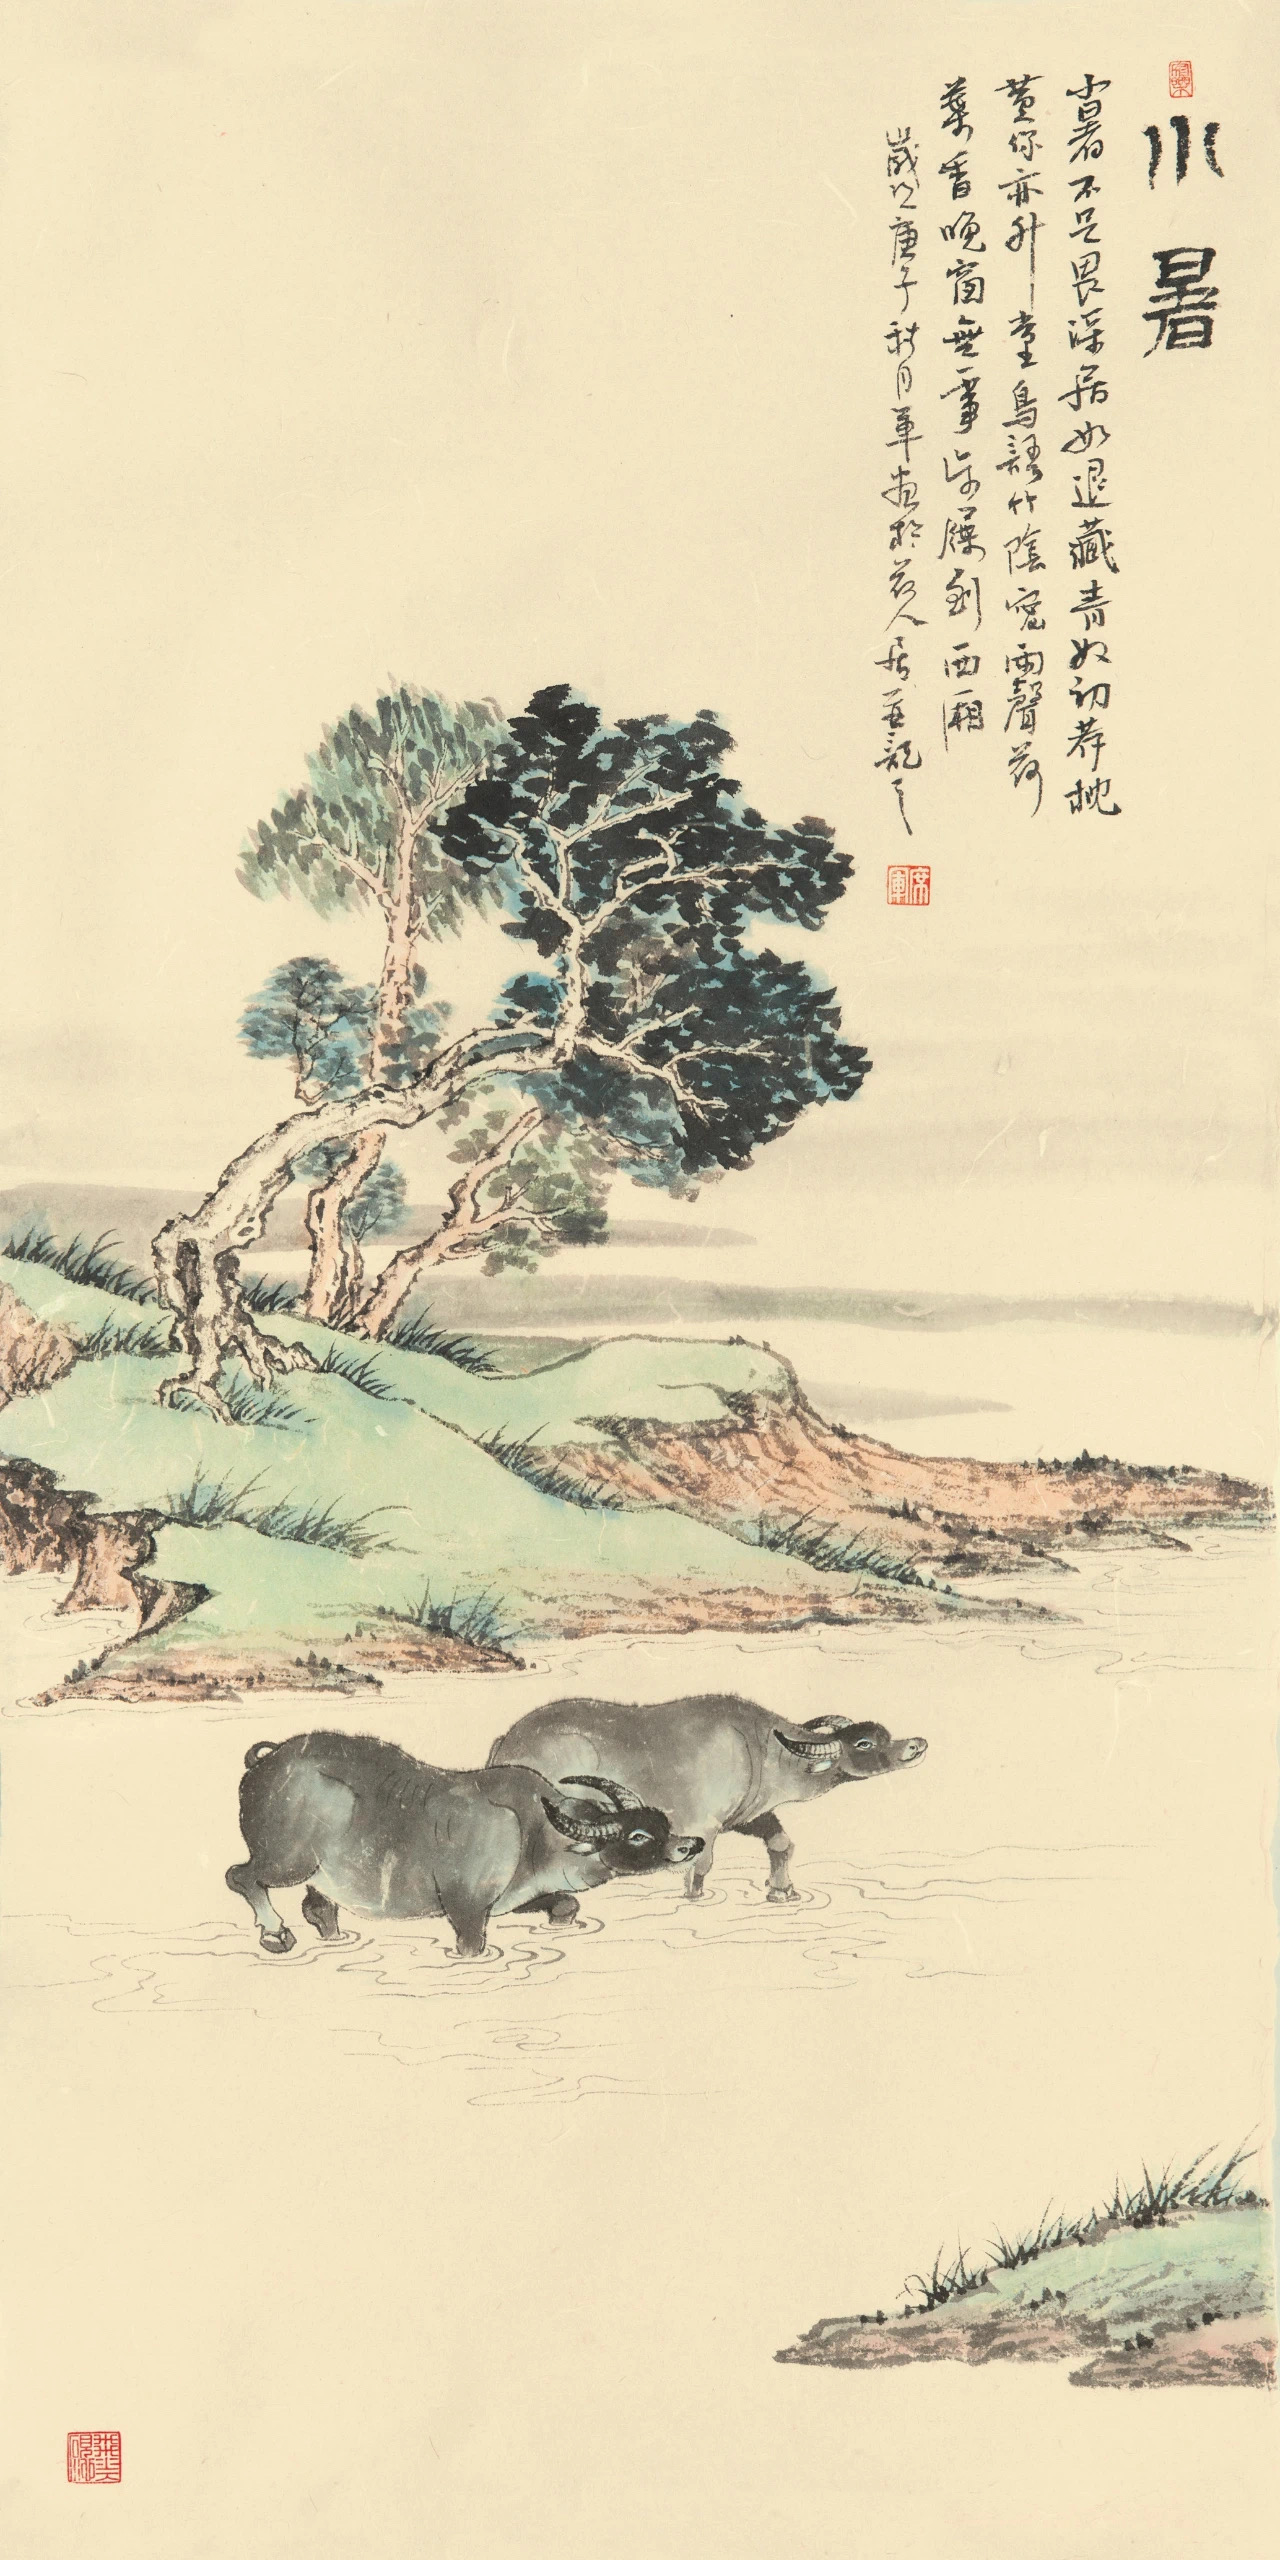 小暑
小暑不足畏深居如退藏青奴初荐枕
黄你亦升堂鳥語竹陰密雨聲荷
葉香晚窗無一事步屧到西廂
歲次庚子秋月軍畫於人居並記之
席軍